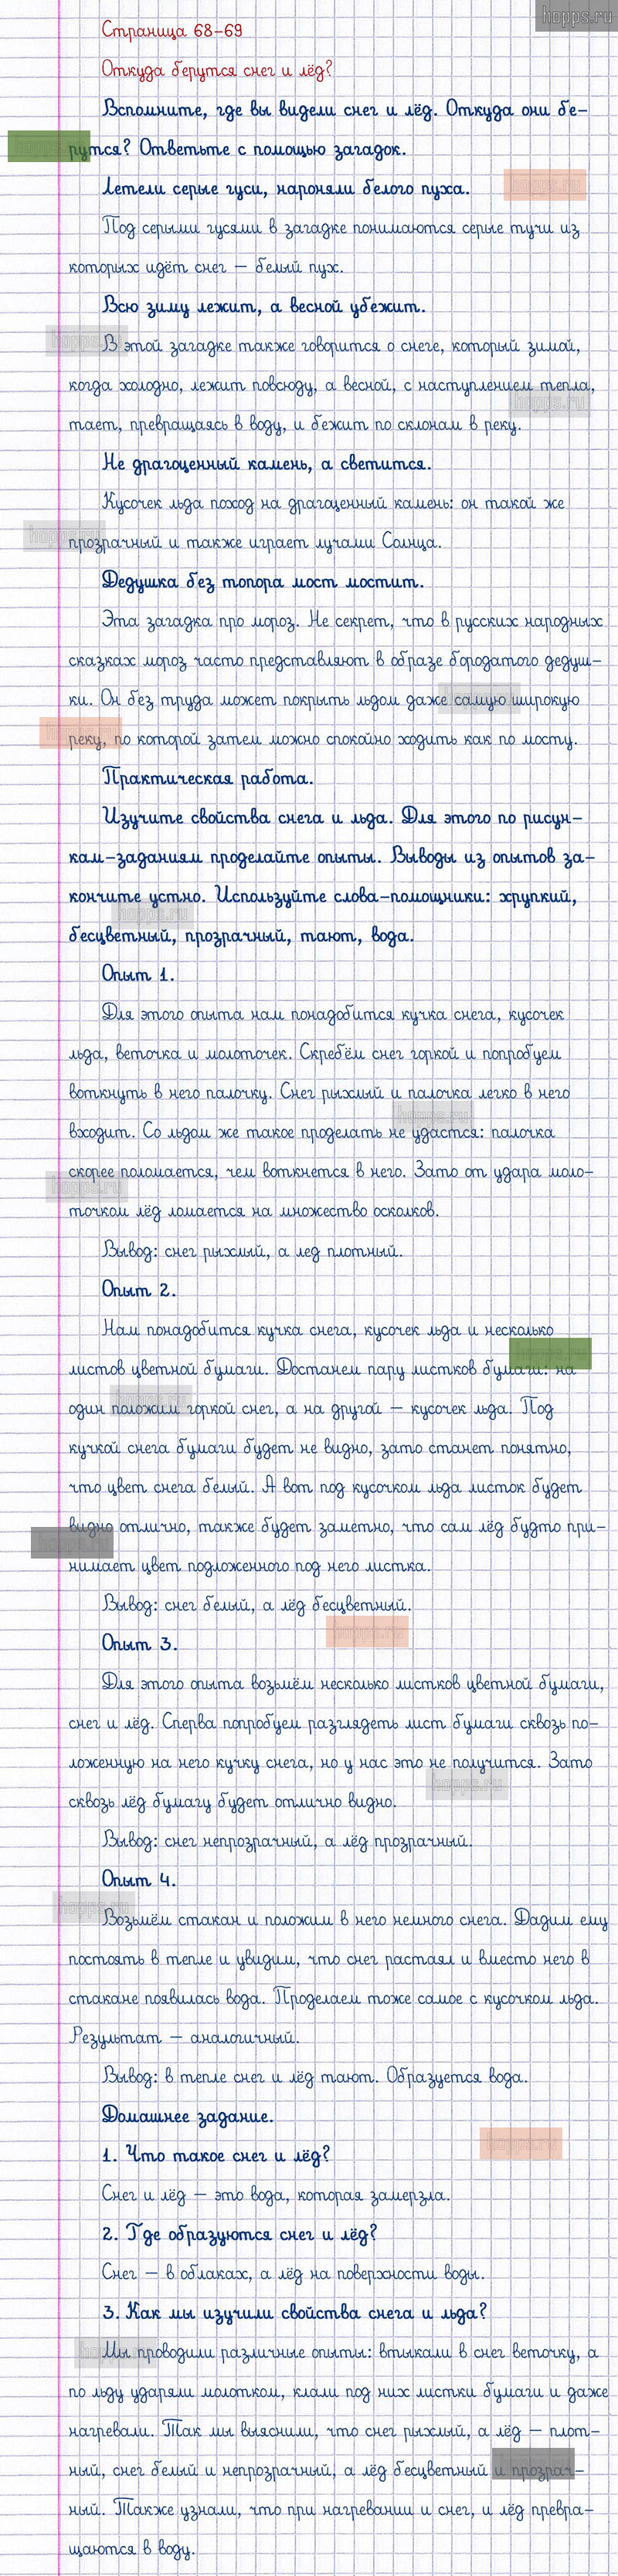 hopps.ru
Страница 68-69
Откуда берутся снег и лёд?
Вспомните, где вы видели снег и лёд. Откуда они бе-
рутся? Ответьте с помощью загадок.
Летели серые гуси, нароняли белого пуха.
Под серыми гусями в загадке понимаются серые тучи из
которых идёт снег – белый пух.
Всю зиму лежит, а весной убежит.
В этой загадке также говорится о снеге, который зимой,
когда холодно, лежит повсюду, а весной, с наступлением тепла,
тает, превращаясь в воду, и бежит по склонам в реку.
Не драгоценный камень, а светится.
Кусочек льда похож на драгоценный камень: он такой же
прозрачный и также играет лучами Солнца.
Дедушка без топора мост мостит.
Эта загадка про мороз. Не секрет, что в русских народных
сказках мороз часто представляют в образе бородатого дедуш-
ки. Он без труда может покрыть льдом даже самую широкую
реку, по которой затем можно спокойно ходить как по мосту.
Практическая работа.
Изучите свойства снега и льда. Для этого по рисун-
кам-заданиям проделайте опыты. Выводы из опытов за-
кончите устно. Используйте слова-помощники: хрупкий,
бесцветный, прозрачный, тают, вода.
Опыт 1.
Для этого опыта нам понадобится кучка снега, кусочек
льда, веточка и молоточек. Скребём снег горкой и попробуем
воткнуть в него палочку. Снег рыхлый и палочка легко в него
входит. Со льдом же такое проделать не удастся: палочка
скорее поломается, чем воткнется в него. Зато от удара моло-
точком лёд ломается на множество осколков.
Вывод: снег рыхлый, а лед плотный.
Опыт 2.
Нам понадобится кучка снега, кусочек льда и несколько
листов цветной бумаги. Достанем пару листков бумаги: на
один положим горкой снег, а на другой – кусочек льда. Под
кучкой снега бумаги будет не видно, зато станет понятно,
что цвет снега белый. А вот под кусочком льда листок будет
видно отлично, также будет заметно, что сам лёд будто при-
нимает цвет подложенного под него листка.
Вывод: снег белый, а лёд бесцветный.
Опыт 3.
Для этого опыта возьмём несколько листков цветной бумаги,
снег и лёд. Сперва попробуем разглядеть лист бумаги сквозь по-
ложенную на него кучку снега, но у нас это не получится. Зато
сквозь лёд бумагу будет отлично видно.
Вывод: снег непрозрачный, а лёд прозрачный.
Опыт 4.
Возьмём стакан и положим в него немного снега. Дадим ему
постоять в тепле и увидим, что снег растаял и вместо него в
стакане появилась вода. Проделаем тоже самое с кусочком льда.
Результат – аналогичный.
Вывод: в тепле снег и лёд тают. Образуется вода.
Домашнее задание.
1. Что такое снег и лёд?
Снег и лёд – это вода, которая замерзла.
2. Где образуются снег и лёд?
Снег – в облаках, а лёд на поверхности воды.
3. Как мы изучили свойства снега и льда?
Мы проводили различные опыты: втыкали в снег веточку, а
по льду ударяли молотком, клали под них листки бумаги и даже
нагревали. Так мы выяснили, что снег рыхлый, а лёд – плот-
ный, снег белый и непрозрачный, а лёд бесцветный и прозрач-
ный. Также узнали, что при нагревании и снег, и лёд превра-
щаются в воду.